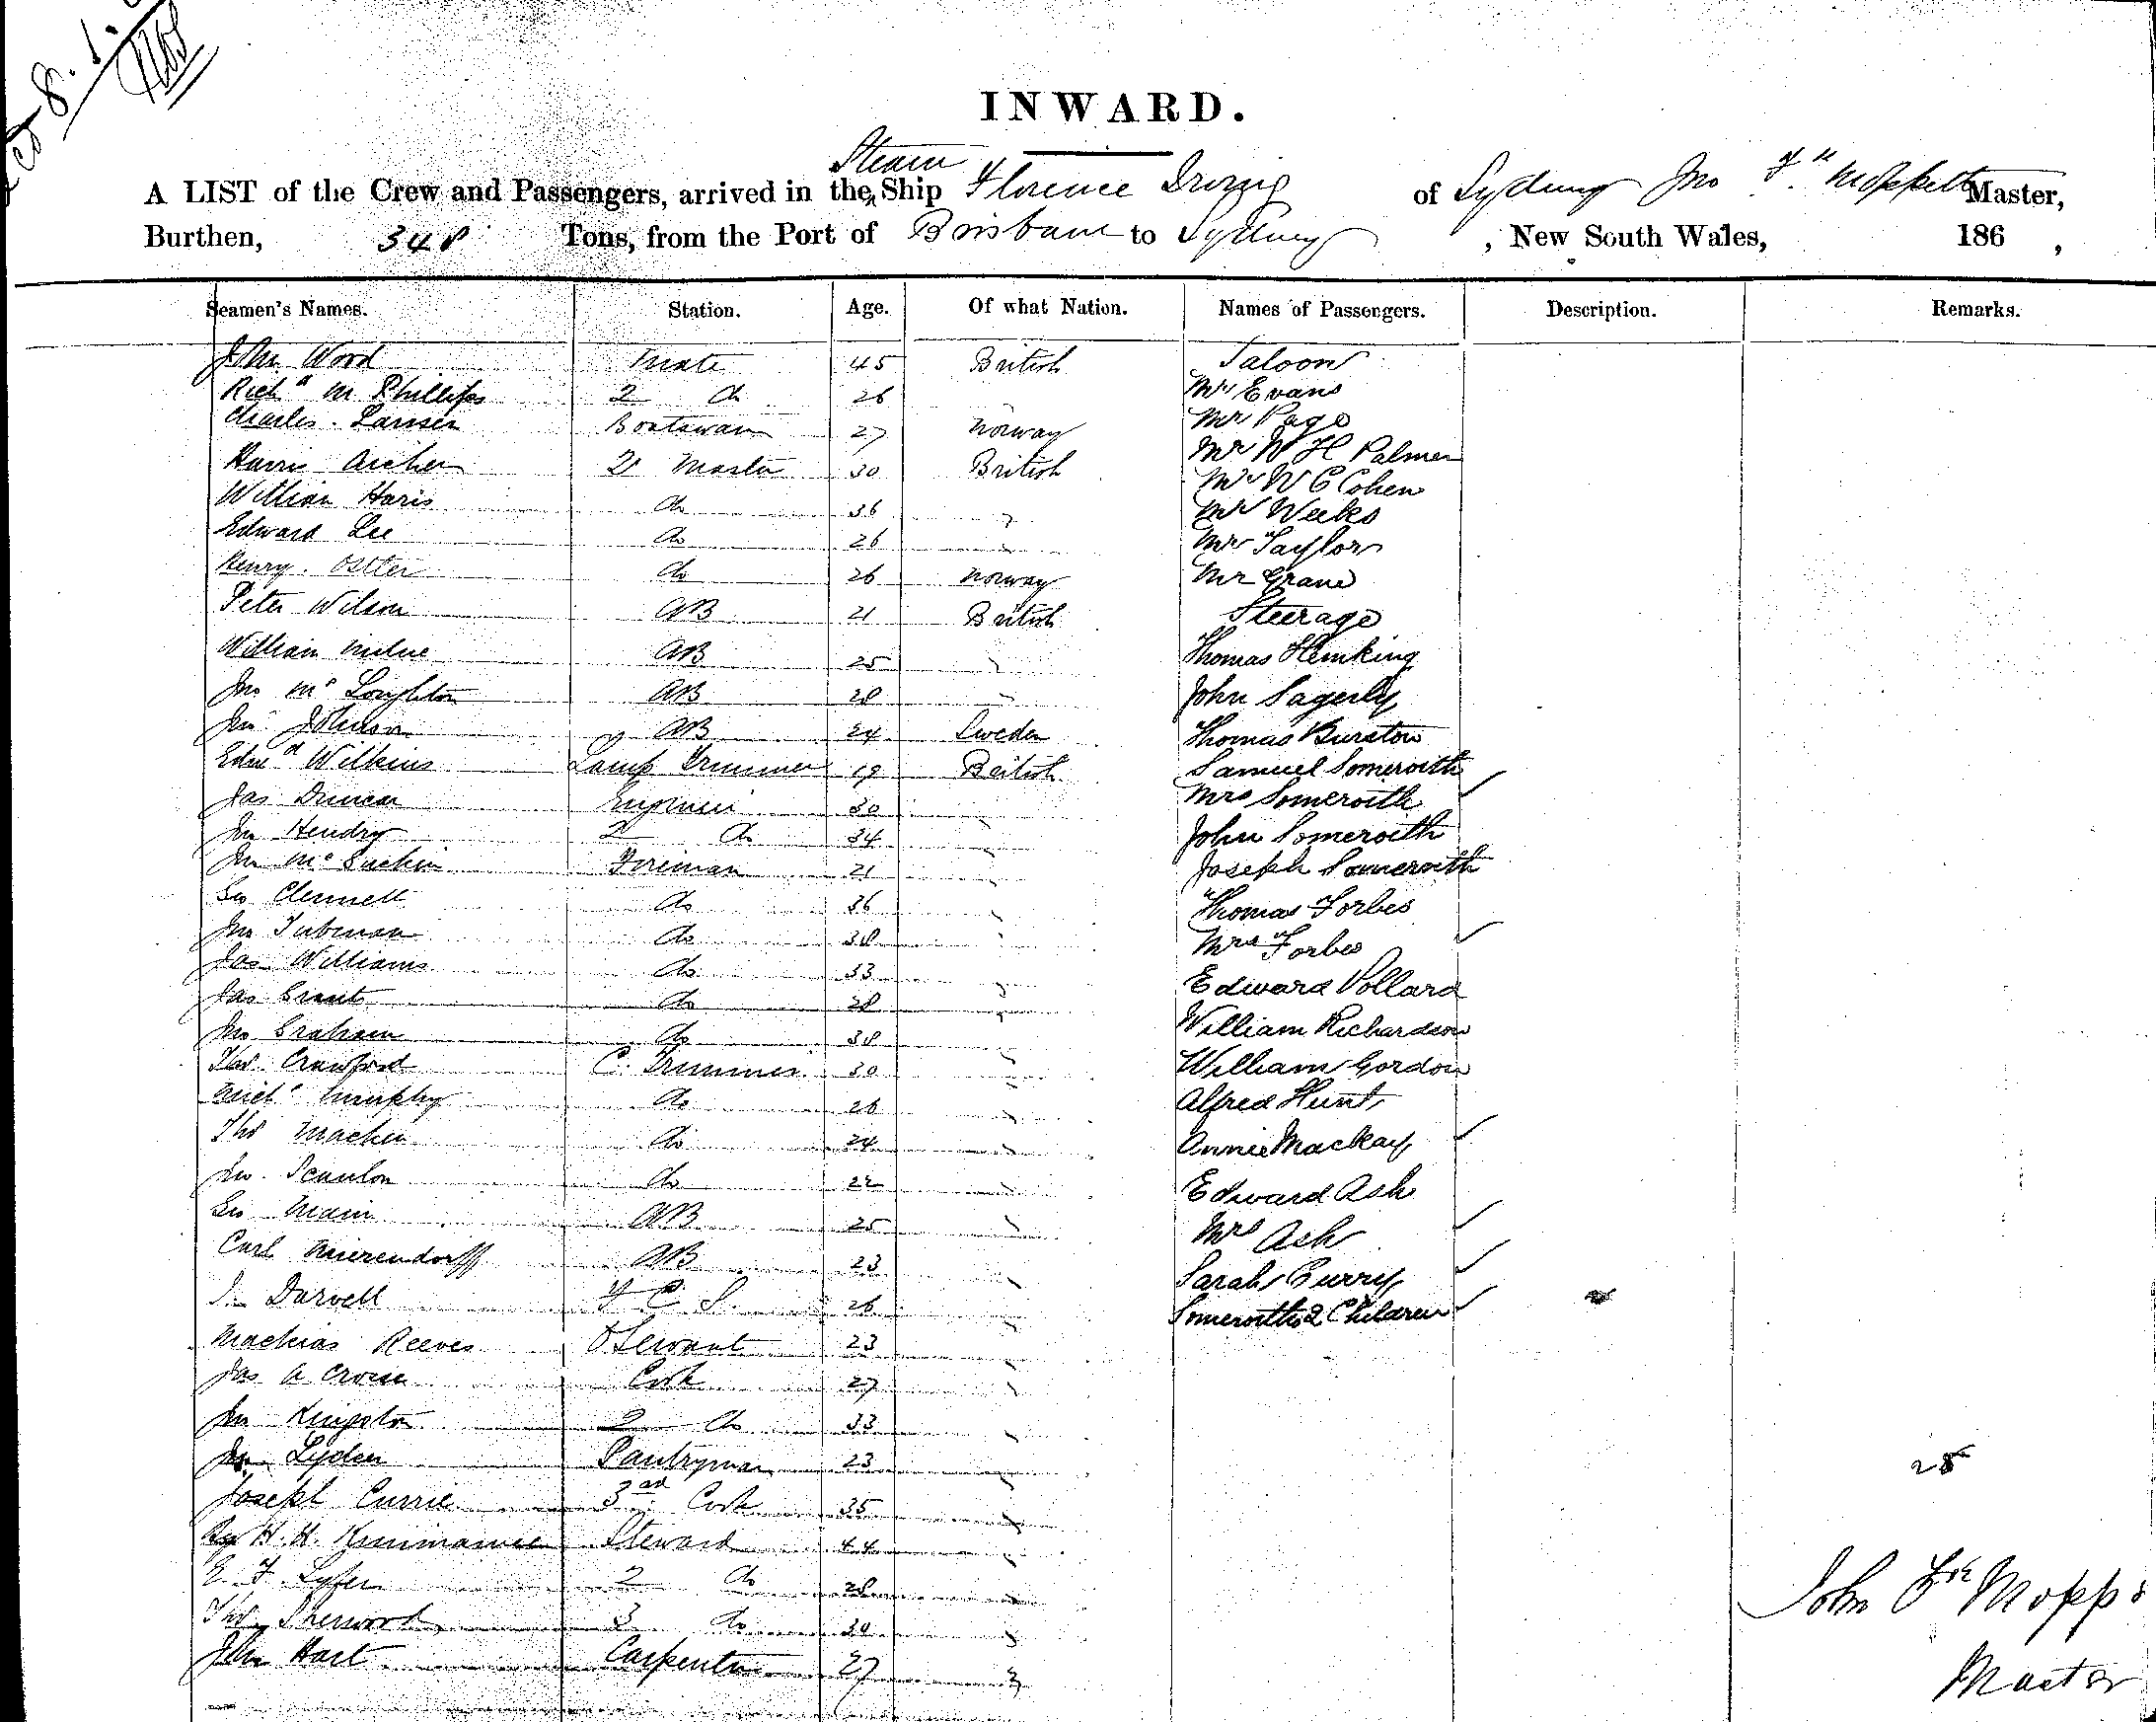 INWARD.
A LIST of the Crew and Passengers, arrived in the Steam Ship Florence Irving of Sydney Jno Fk Moppett Master,
Burthen, 348 Tons, from the Port of Brisbane to Sydney, New South Wales, 186 ,
Seamen's Names. Station. Age. Of what Nation. Names of Passengers. Description. Remarks.
John Wood Mate 45 British Saloon
Richd M Phillips 2 do 26 Mr Evans
Charles Larsen Boatswain 27 Norway Mr Page
Harris Archer Qr Master 30 British Mr W H Palmer
William Haris do 36 " Mr W C Cohen
Mr Weeks
Edward Lee do 26 " Mr Taylor
Henry Ostter do 26 Norway Mr Grane
Peter Wilson AB 21 British Steerage
William Milne AB 25 " Thomas Hemking
Jno Mc Loughton AB 28 " John Sagerly
Jno Johnson AB 24 Sweden Thomas Burston
Edwd Wilkins Lamp Trimmer 19 British Samuel Someroith
Jas Duncan Engineer 30 " Mrs Someroith
Jno Hendry 2 do 34 " John Someroith
Jno Mc Fireman 21 " Joseph Someroith
Geo Clennett do 36 " Thomas Forbes
Jno Tubman do 38 " Mrs Forbes
Jas Williams do 33 " Edward Pollard
Jas Grant do 28 " William Richardson
Jno Graham do 38 " William Gordon
Thos Crawford C. Trimmer 30 " Alfred Hunt
Michl Murphy do 26 " Annie Mackay
Thos Machen do 24 "
Jno Scanlon do 22 " Edward Ash
Geo Main AB 25 " Mrs Ash
Carl Mierendorff AB 23 " Sarah Curry
J. Darvell F C S 26 " Someroith 2 Children
Machias Reeves Servant 23 "
Jas A Croise Cook 27 "
Jno Kingston 2 do 33 "
Jno Lyden Pantryman 23 " 25
Joseph Currie 3rd Cook 35 "
H. H. Steward 44 "
E. F. Lyfer 2 do 28 "
Thos Sherwood 3 do 30 "
John Hart Carpenter 27 "
John Fk Mopp
Master